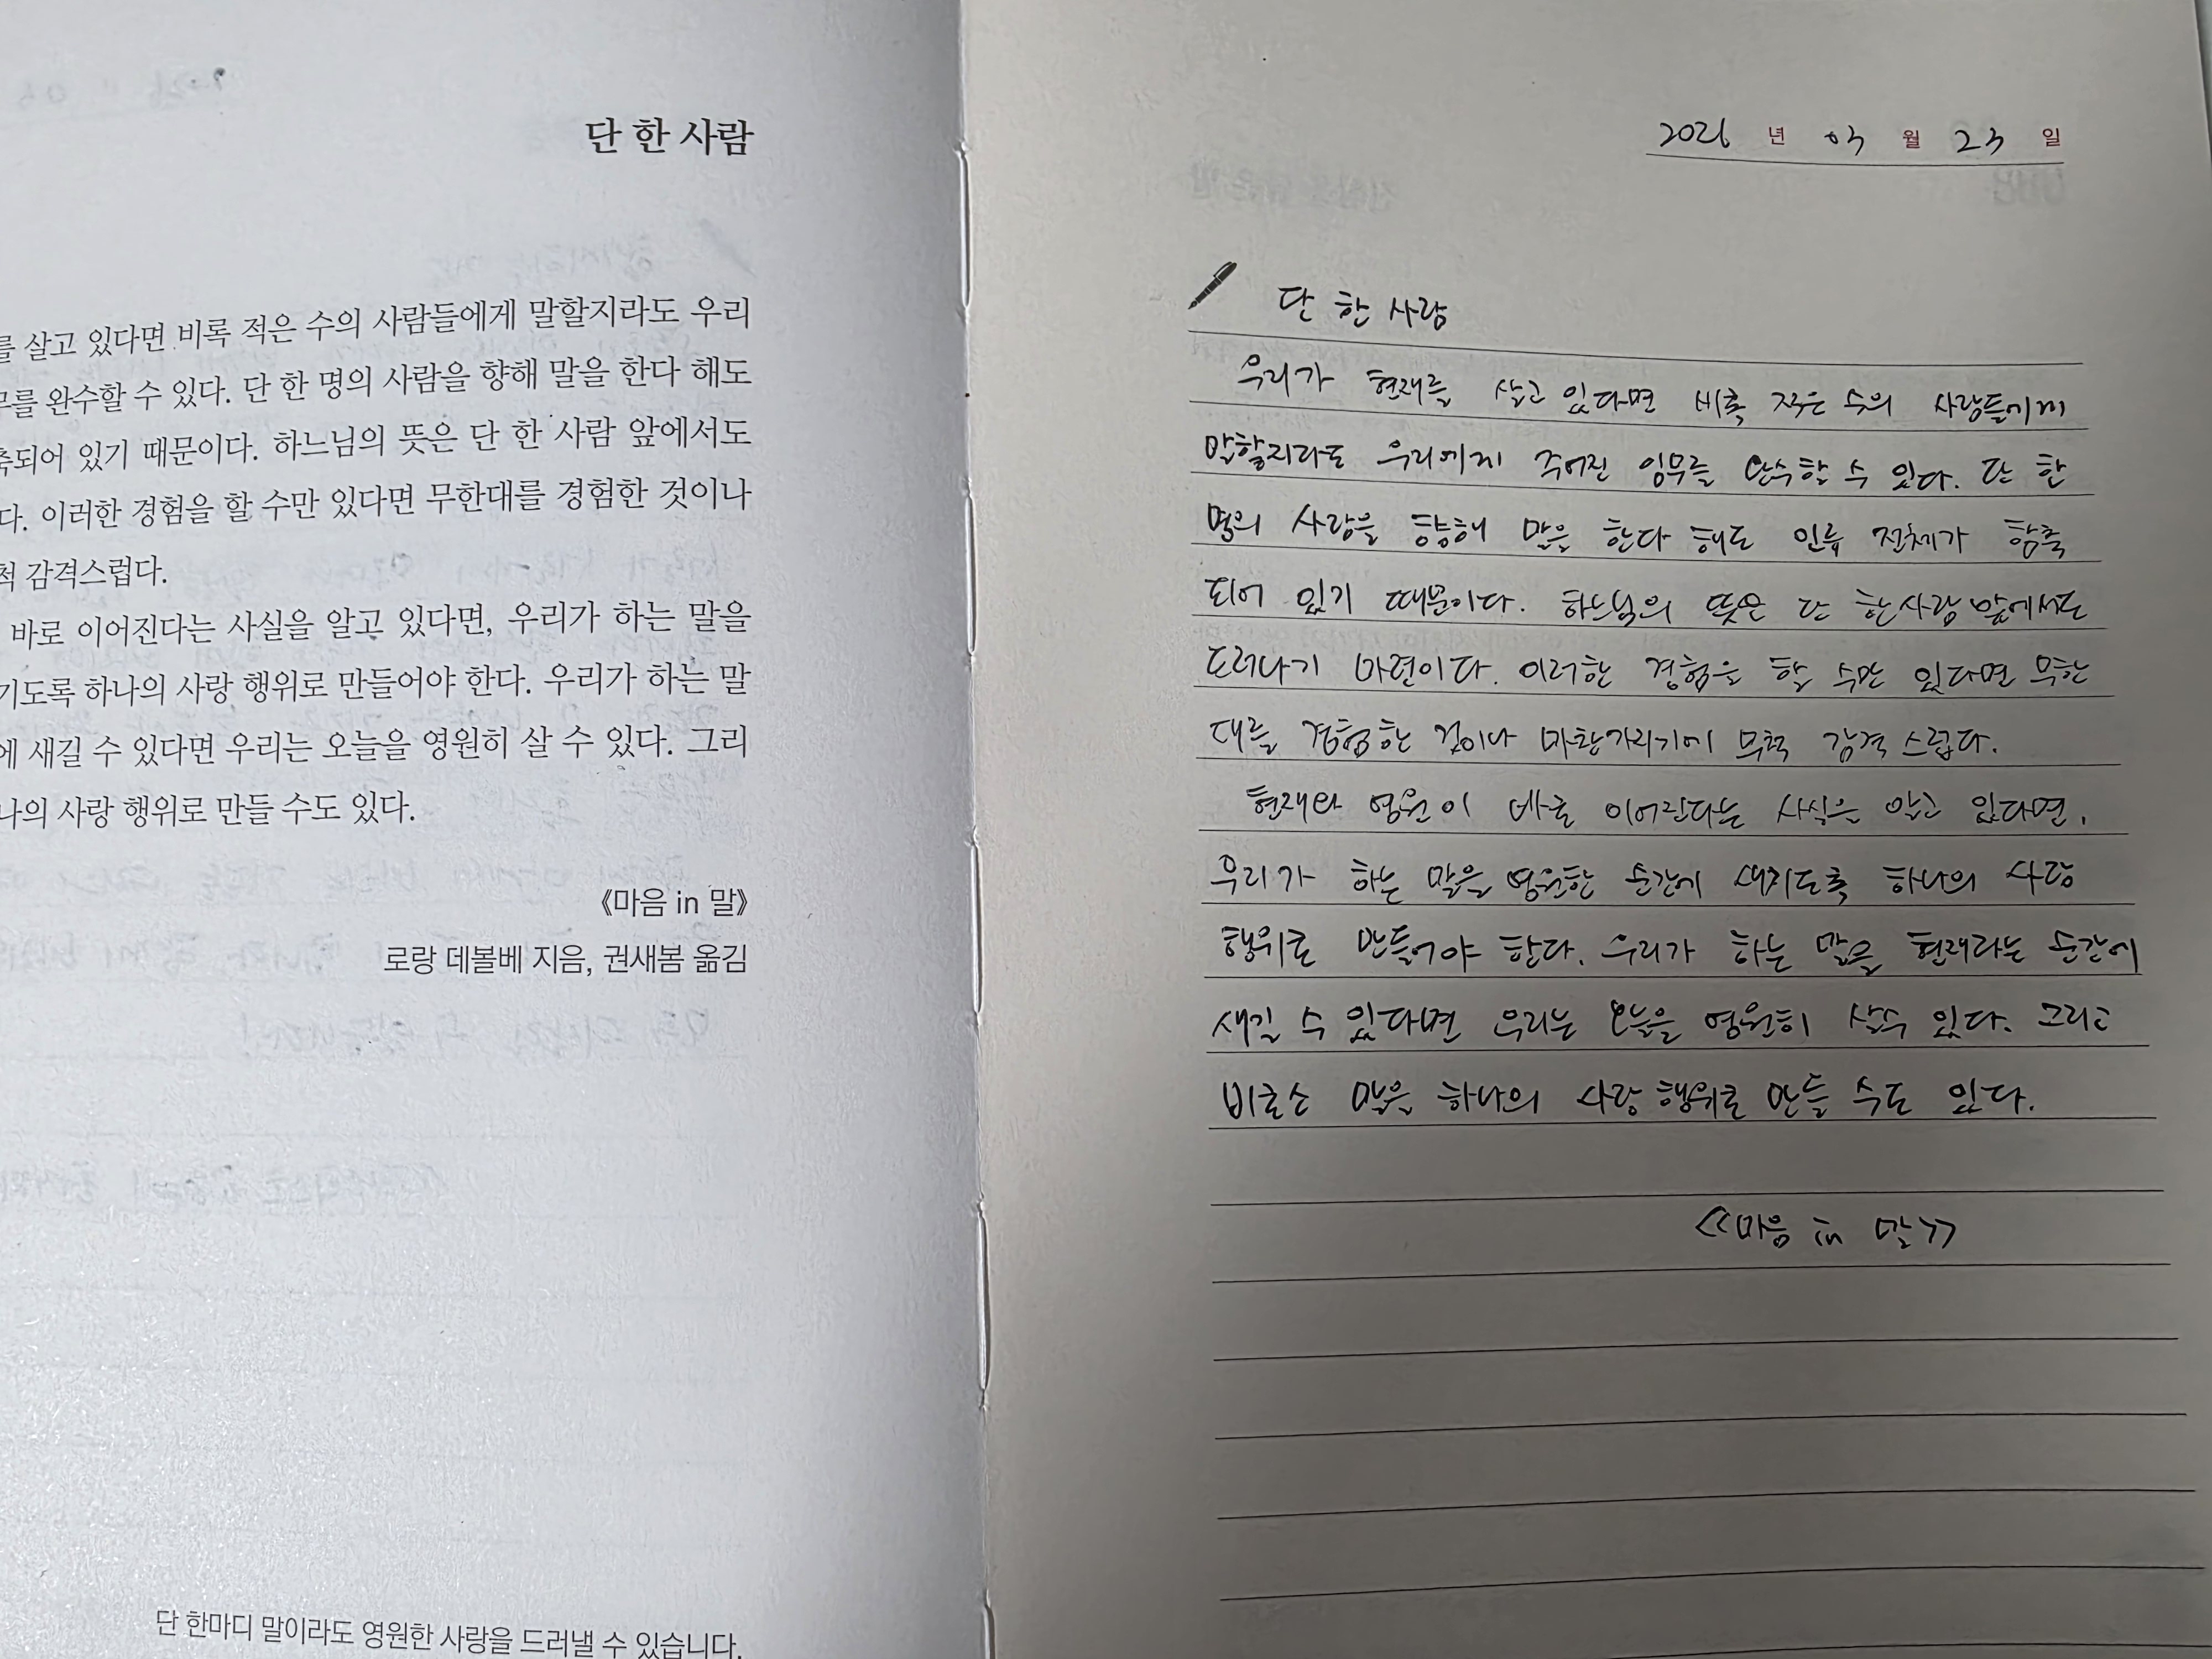 단 한 사람
를 살고 있다면 비록 적은 수의 사람들에게 말할지라도 우리
무를 완수할 수 있다. 단 한 명의 사람을 향해 말을 한다 해도
축되어 있기 때문이다. 하느님의 뜻은 단 한 사람 앞에서도
다. 이러한 경험을 할 수만 있다면 무한대를 경험한 것이나
척 감격스럽다.
바로 이어진다는 사실을 알고 있다면, 우리가 하는 말을
기도록 하나의 사랑 행위로 만들어야 한다. 우리가 하는 말
에 새길 수 있다면 우리는 오늘을 영원히 살 수 있다. 그리
나의 사랑 행위로 만들 수도 있다.
《마음 in 말》
로랑 데볼베 지음, 권새봄 옮김
단 한마디 말이라도 영원한 사랑을 드러낼 수 있습니다.
2026 년 03 월 23 일
단 한 사람
우리가 현재를 살고 있다면 비록 적은 수의 사람들에게
말할지라도 우리에게 주어진 임무를 완수할 수 있다. 단 한
명의 사람을 향해 말을 한다 해도 인류 전체가 함축
되어 있기 때문이다. 하느님의 뜻은 단 한사람 앞에서도
드러나기 마련이다. 이러한 경험을 할 수만 있다면 무한
대를 경험한 것이나 마찬가지기에 무척 감격스럽다.
현재와 영원이 바로 이어진다는 사실을 알고 있다면,
우리가 하는 말을 영원한 순간에 새기도록 하나의 사랑
행위로 만들어야 한다. 우리가 하는 말을 현재라는 순간에
새길 수 있다면 우리는 오늘을 영원히 살수 있다. 그리고
비로소 말을 하나의 사랑 행위로 만들 수도 있다.
《마음 in 말》